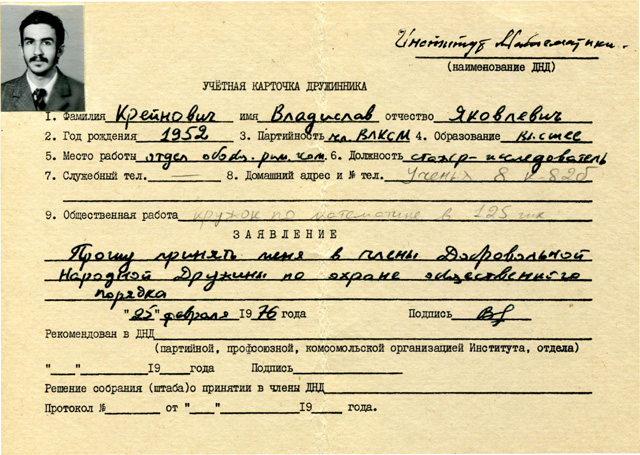 Институт Математики.
(наименование ДНД)
УЧЁТНАЯ КАРТОЧКА ДРУЖИННИКА
1. Фамилия Крейнович имя Владислав отчество Яковлевич
2. Год рождения 1952 3. Партийность чл. ВЛКСМ 4. Образование высшее
5. Место работы отдел 6. Должность стажер-исследователь
7. Служебный тел. — 8. Домашний адрес и № тел. Ученых 8 к-82б
9. Общественная работа кружок по математике в 125 шк.
ЗАЯВЛЕНИЕ
Прошу принять меня в члены Добровольной
Народной Дружины по охране общественного
порядка
"25" февраля 1976 года Подпись
Рекомендован в ДНД
(партийной, профсоюзной, комсомольской организацией Института, отдела)
"__"______19__года Подпись
Решение собрания (штаба)о принятии в члены ДНД
Протокол №______ от "__"______19__ года.